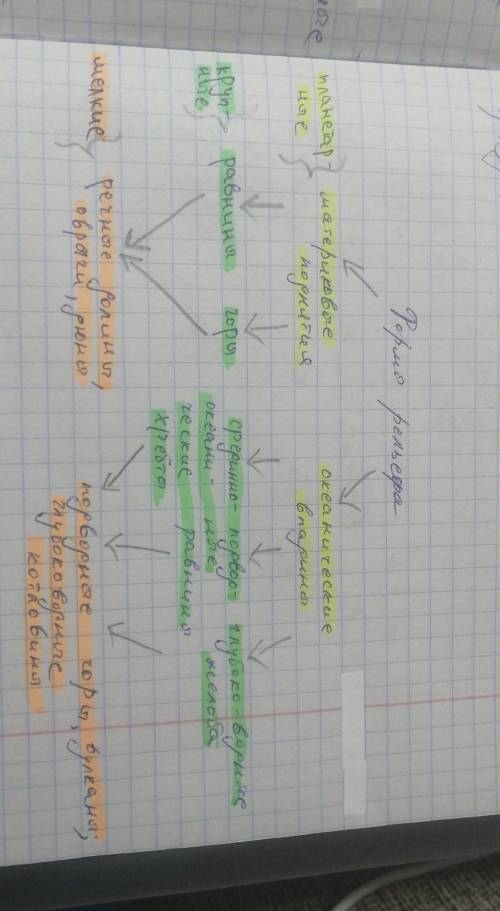 Формы рельефа
планетар-
ные
материковые
поднятия
океанические
впадины
круп-
ные
равнины
горы
срединно-
океани-
ческие
хребты
подвод-
ные
равнины
глубоководные
желоба
мелкие
речные долины,
овраги, дюны
подводные горы, вулканы,
глубоководные
котловины